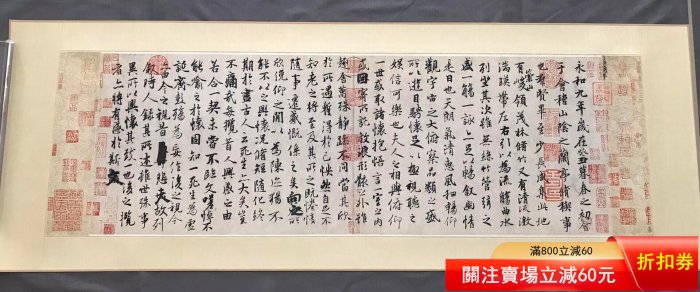 永和九年歲在癸丑暮春之初會
于會稽山陰之蘭亭脩禊事
也羣賢畢至少長咸集此地
有崇山峻領茂林脩竹又有清流激
湍暎帶左右引以為流觴曲水
列坐其次雖無絲竹管弦之
盛一觴一詠亦足以暢敘幽情
是日也天朗氣清惠風和暢仰
觀宇宙之大俯察品類之盛
所以遊目騁懷足以極視聽之
娛信可樂也夫人之相與俯仰
一世或取諸懷抱悟言一室之內
或因寄所託放浪形骸之外雖
趣舍萬殊靜躁不同當其欣
於所遇蹔得於己怏然自足不
知老之將至及其所之既惓情
隨事遷感慨係之矣向之所
欣俛仰之閒以為陳迹猶不
能不以之興懷況脩短隨化終
期於盡古人云死生亦大矣豈
不痛哉每攬昔人興感之由
若合一契未嘗不臨文嗟悼不
能喻之於懷固知一死生為虛
誕齊彭殤為妄作後之視今
亦由今之視昔悲夫故列
敘時人錄其所述雖世殊事
異所以興懷其致一也後之攬
者亦將有感於斯文
滿800立減60
關注賣場立減60元
折扣券